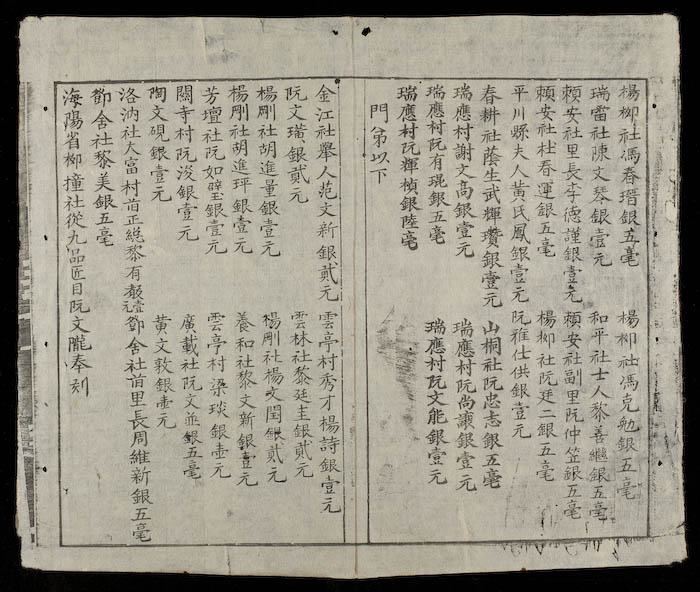 楊柳社馮春瑨銀五毫　楊柳社馮克勉銀五毫
瑞雷社陳文琴銀壹元　和平社士人黎善繼銀五毫
賴安社里長李德謹銀壹元　賴安社副里阮仲笠銀五毫
賴安社杜春運銀五毫　楊柳社阮廷二銀五毫
平川縣夫人黃氏鳳銀壹元　阮雅仕供銀壹元
春耕社蔭生武輝瓚銀壹元　山桐社阮忠志銀五毫
瑞應村謝文高銀壹元　瑞應村阮尚讓銀壹元
瑞應村阮有琨銀五毫　瑞應村阮文能銀壹元
瑞應村阮輝楨銀陸毫
門弟以下
金江社舉人范文新銀貳元　雲亭村秀才楊詩銀壹元
阮文璜銀貳元　雲林社黎廷圭銀貳元
楊剛社胡進量銀壹元　楊剛社楊文閏銀貳元
楊剛社胡進坪銀壹元　養和社黎文新銀壹元
芳壇社阮如璧銀壹元　雲亭村梁琰銀壹元
闊寺村阮浚銀壹元　廣載社阮文並銀五毫
陶文硯銀壹元　黃文敦銀壹元
洛汭社大富村前正總黎有壹元　鄧舍社前里長周維新銀五毫
鄧舍社黎美銀五毫
海陽省柳撞社從九品匠目阮文隴奉刻